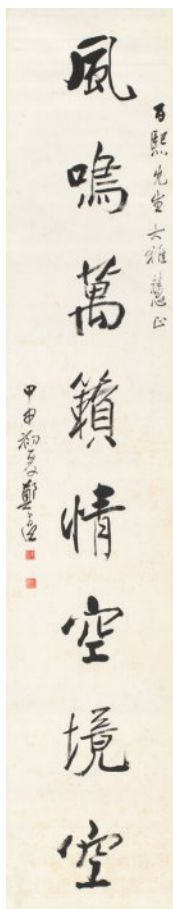 百熙先生大雅慧正
風鳴萬籟情空境空
甲申初夏鄭